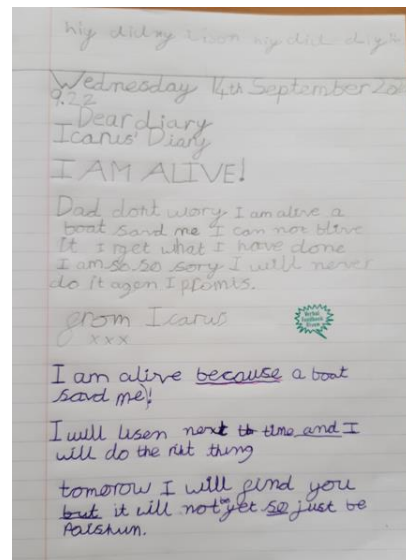 hiy didny lison hiy did diy't
Wednesday 14th September 202
9.22
Dear diary
Icarus' Diary
I AM ALIVE!
Dad dont wory I am alive a
boat savd me I can not blive
it I rget what I have done
I am so so sory I will never
do it agen I promis.
from Icarus
xxx
Verbal
Feedback
Given
I am alive because a boat
savd me!
I will lisen next to time and I
will do the riht thing
tomorow I will find you
but it will not be yet so just be
Paishun.